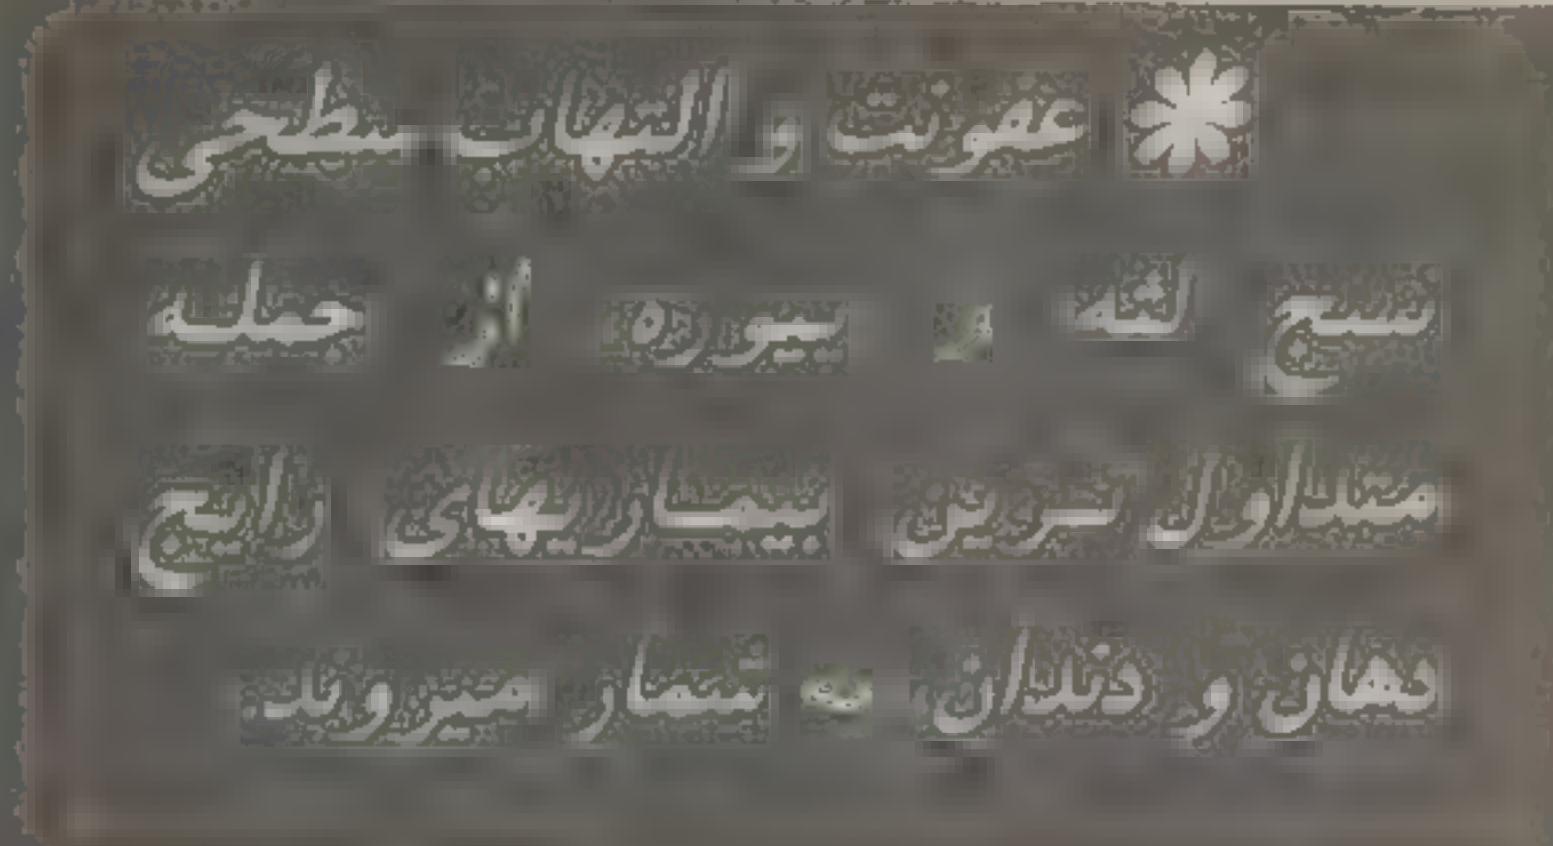 عفونت و التهاب سطحی
نسج لثه و پیوره از جمله
متداول ترین بیماریهای رایج
دهان و دندان به شمار میروند